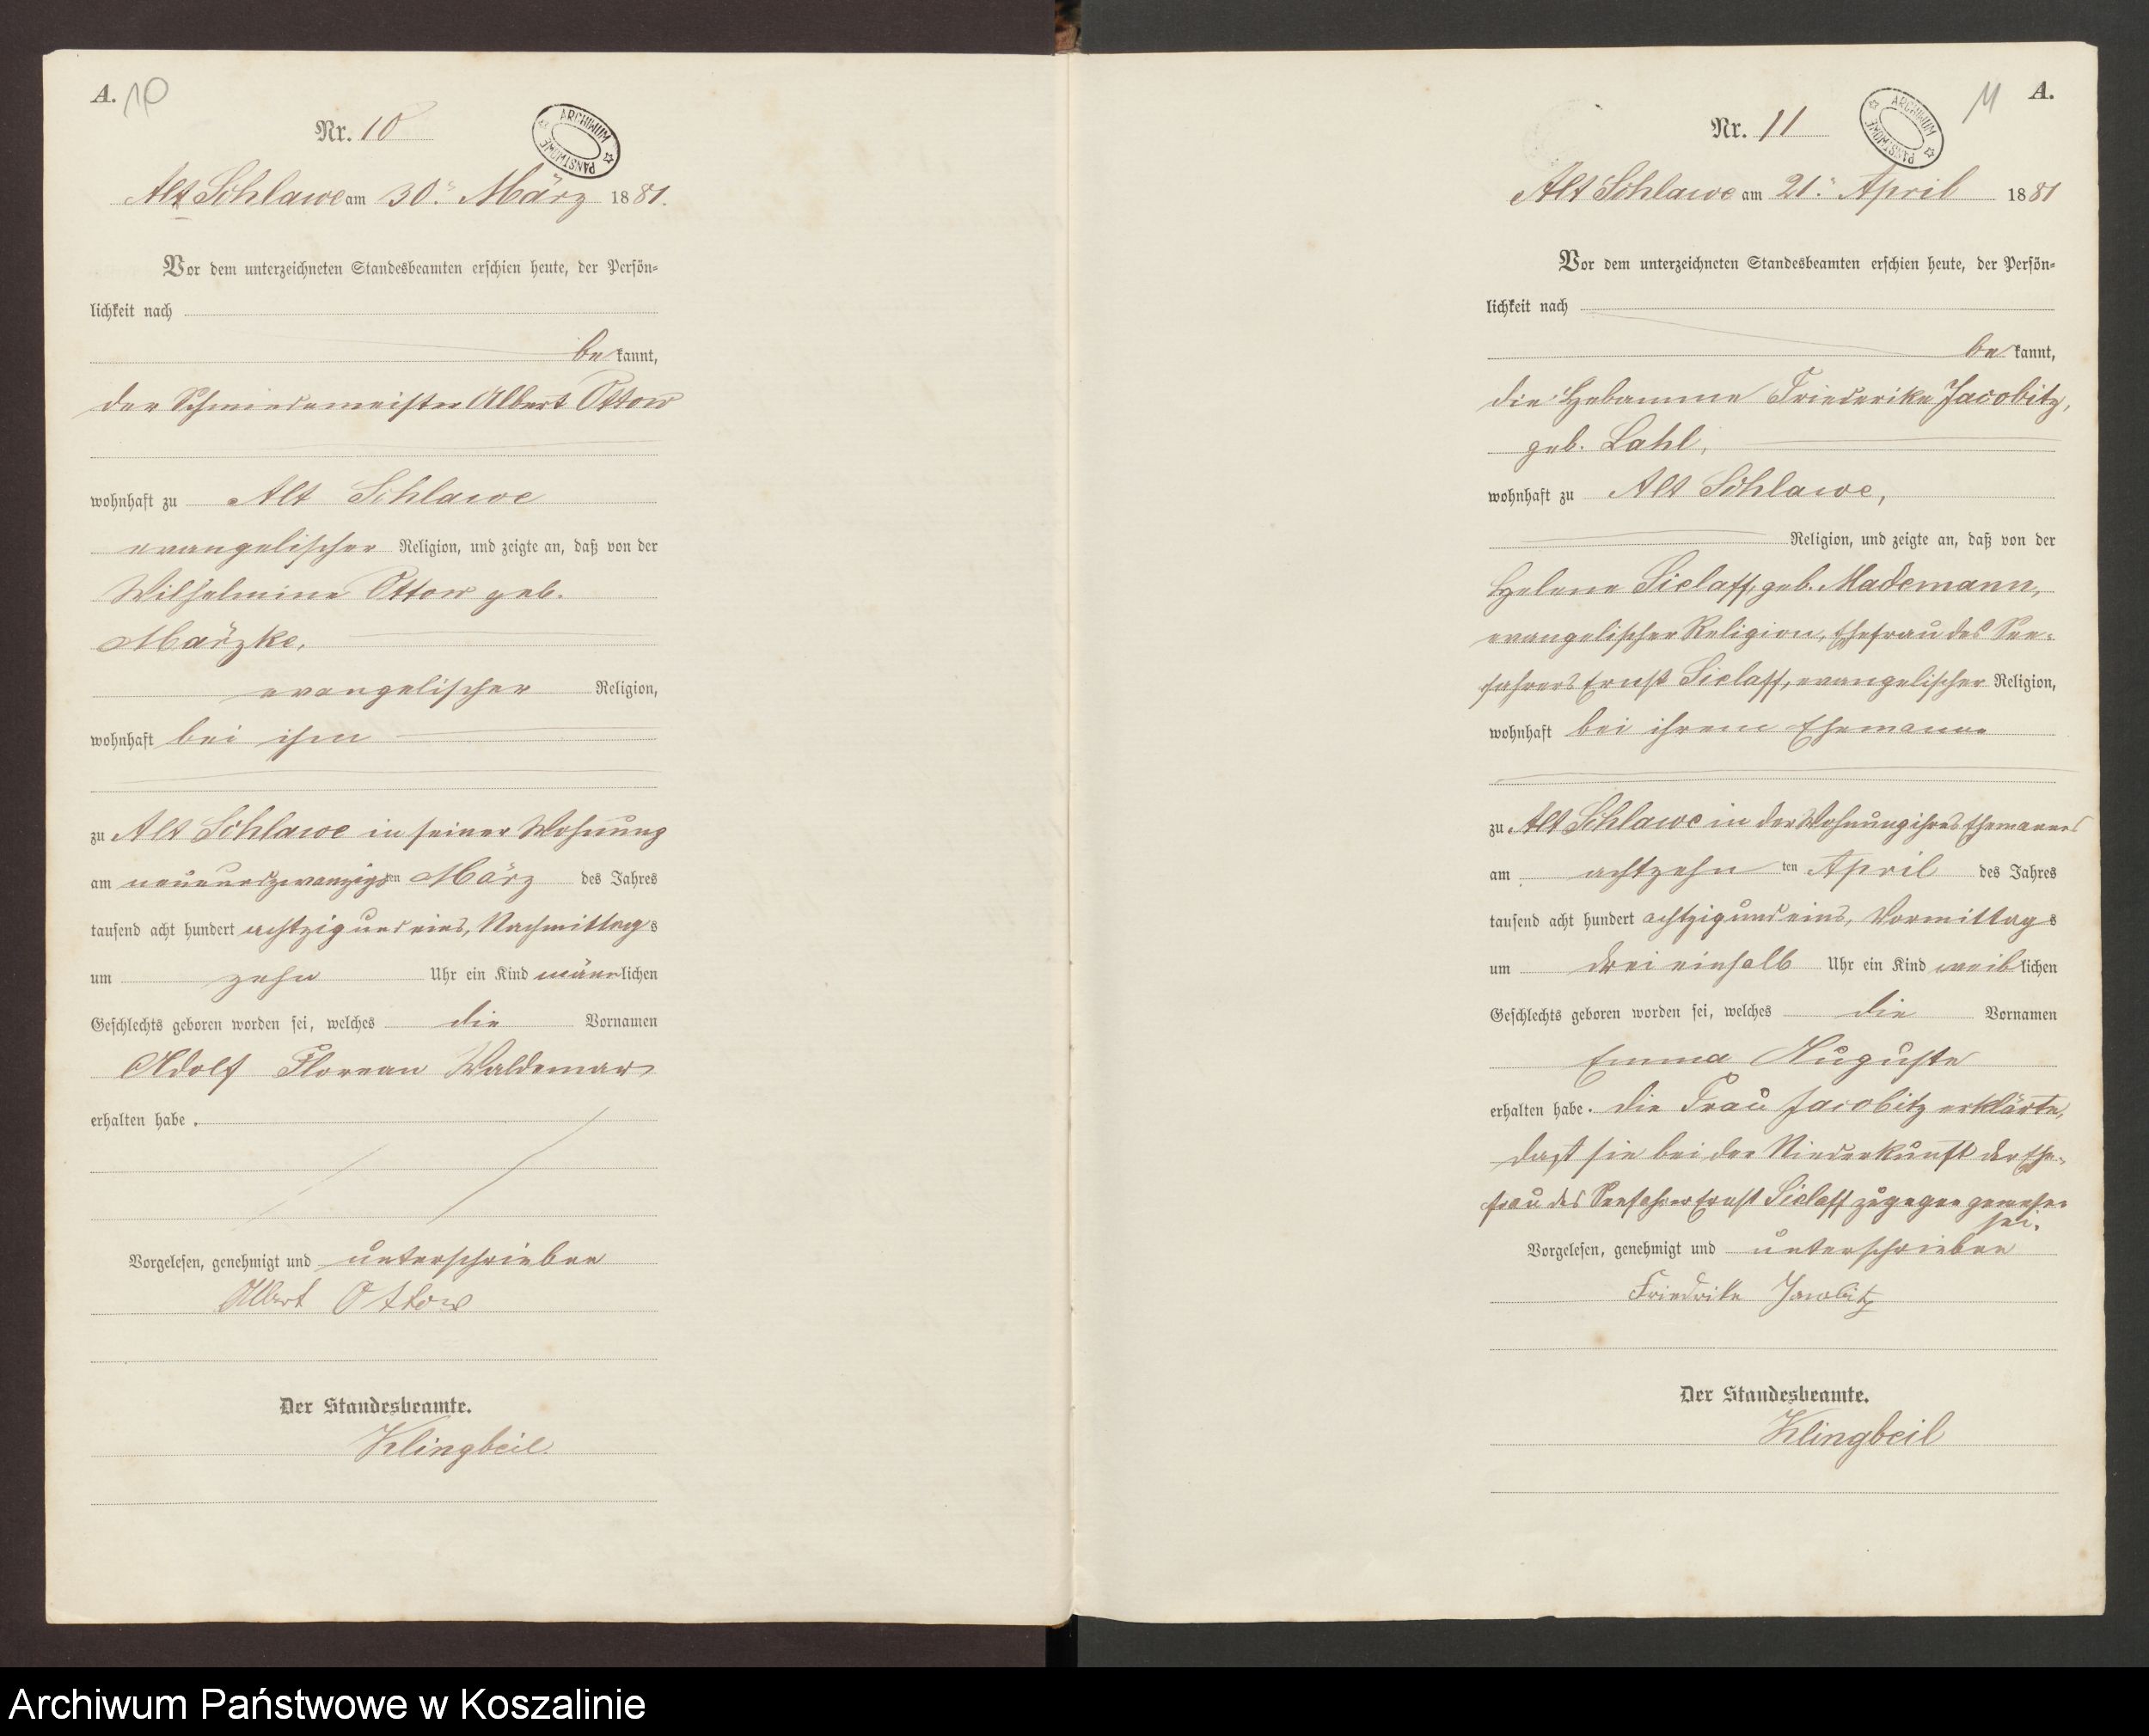 A. 10
ARCHIWUM PAŃSTWOWE
Nr. 10
Alt Schlawe am 30. März 1881.
Vor dem unterzeichneten Standesbeamten erschien heute, der Persön-
lichkeit nach
be kannt,
der Schmiedemeister Albert Ottow
wohnhaft zu Alt Schlawe
evangelischer Religion, und zeigte an, daß von der
Wilhelmine Ottow geb.
Märzke,
evangelischer Religion,
wohnhaft bei ihm
zu Alt Schlawe in seiner Wohnung
am neunundzwanzigsten März des Jahres
tausend acht hundert achtzig und eins, Nachmittags
um zehn Uhr ein Kind männlichen
Geschlechts geboren worden sei, welches die Vornamen
Adolf Florean Waldemar
erhalten habe.
Vorgelesen, genehmigt und unterschrieben
Albert Ottow
Der Standesbeamte.
Klingbeil.
11 A.
ARCHIWUM PAŃSTWOWE
Nr. 11
Alt Schlawe am 21. April 1881
Vor dem unterzeichneten Standesbeamten erschien heute, der Persön-
lichkeit nach
be kannt,
die Hebamme Friederike Jacobitz,
geb. Lahl,
wohnhaft zu Alt Schlawe,
Religion, und zeigte an, daß von der
Helene Sielaff, geb. Mademann,
evangelischer Religion, Ehefrau des See-
fahrers Ernst Sielaff, evangelischer Religion,
wohnhaft bei ihrem Ehemanne
zu Alt Schlawe in der Wohnung ihres Ehemannes
am achtzehn ten April des Jahres
tausend acht hundert achtzig und eins, Vormittags
um drei einhalb Uhr ein Kind weiblichen
Geschlechts geboren worden sei, welches die Vornamen
Emma Auguste
erhalten habe. die Frau Jacobitz erklärte,
daß sie bei der Niederkunft der Ehe-
frau des Seefahrer Ernst Sielaff zugegen gewesen
sei.
Vorgelesen, genehmigt und unterschrieben
Friedrike Jacobitz
Der Standesbeamte.
Klingbeil
Archiwum Państwowe w Koszalinie